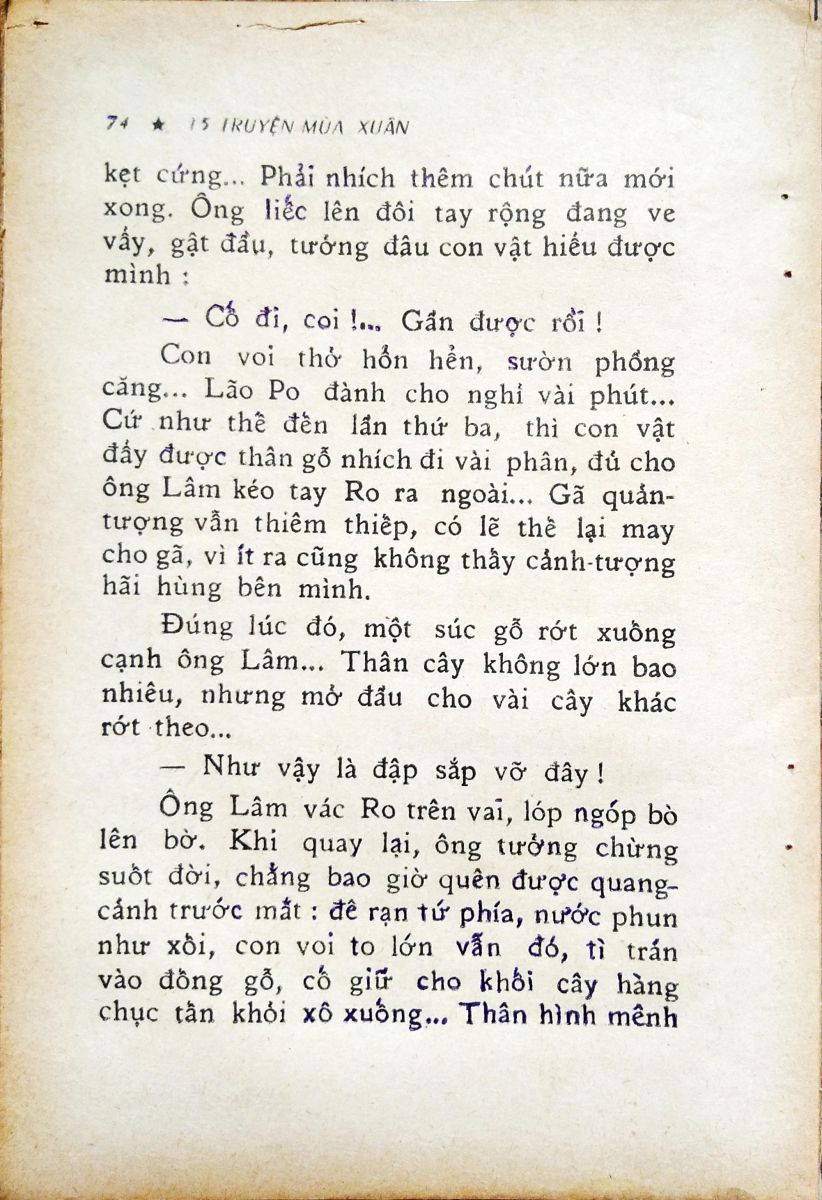 74 ★ 15 TRUYỆN MÙA XUÂN
kẹt cứng... Phải nhích thêm chút nữa mới
xong. Ông liếc lên đôi tay rộng đang ve
vẩy, gật đầu, tưởng đâu con vật hiểu được
mình :
— Cố đi, coi !... Gần được rồi !
Con voi thở hổn hển, sườn phồng
căng... Lão Po đành cho nghỉ vài phút...
Cứ như thế đến lần thứ ba, thì con vật
đẩy được thân gỗ nhích đi vài phân, đủ cho
ông Lâm kéo tay Ro ra ngoài... Gã quản-
tượng vẫn thiêm thiếp, có lẽ thế lại may
cho gã, vì ít ra cũng không thấy cảnh-tượng
hãi hùng bên mình.
Đúng lúc đó, một súc gỗ rớt xuống
cạnh ông Lâm... Thân cây không lớn bao
nhiêu, nhưng mở đầu cho vài cây khác
rớt theo...
— Như vậy là đập sắp vỡ đây !
Ông Lâm vác Ro trên vai, lóp ngóp bò
lên bờ. Khi quay lại, ông tưởng chừng
suốt đời, chẳng bao giờ quên được quang-
cảnh trước mắt : đê rạn tứ phía, nước phun
như xối, con voi to lớn vẫn đó, tì trán
vào đống gỗ, cố giữ cho khối cây hàng
chục tấn khỏi xô xuống... Thân hình mênh